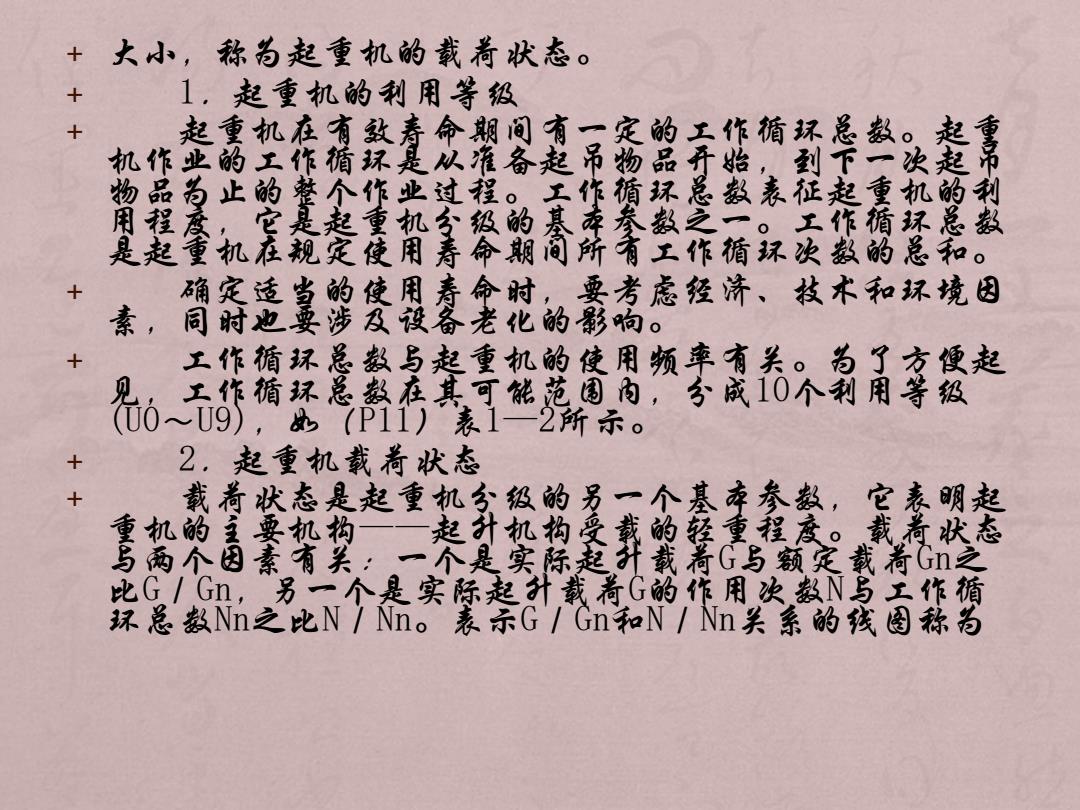 + 大小，称为起重机的载荷状态。
+ 1．起重机的利用等级
+ 起重机在有效寿命期间有一定的工作循环总数。起重
机作业的工作循环是从准备起吊物品开始，到下一次起吊
物品为止的整个作业过程。工作循环总数表征起重机的利
用程度，它是起重机分级的基本参数之一。工作循环总数
是起重机在规定使用寿命期间所有工作循环次数的总和。
+ 确定适当的使用寿命时，要考虑经济、技术和环境因
素，同时也要涉及设备老化的影响。
+ 工作循环总数与起重机的使用频率有关。为了方便起
见，工作循环总数在其可能范围内，分成10个利用等级
(U0～U9)，如（P11）表1—2所示。
+ 2．起重机载荷状态
+ 载荷状态是起重机分级的另一个基本参数，它表明起
重机的主要机构——起升机构受载的轻重程度。载荷状态
与两个因素有关：一个是实际起升载荷G与额定载荷Gn之
比G／Gn，另一个是实际起升载荷G的作用次数N与工作循
环总数Nn之比N／Nn。表示G／Gn和N／Nn关系的线图称为